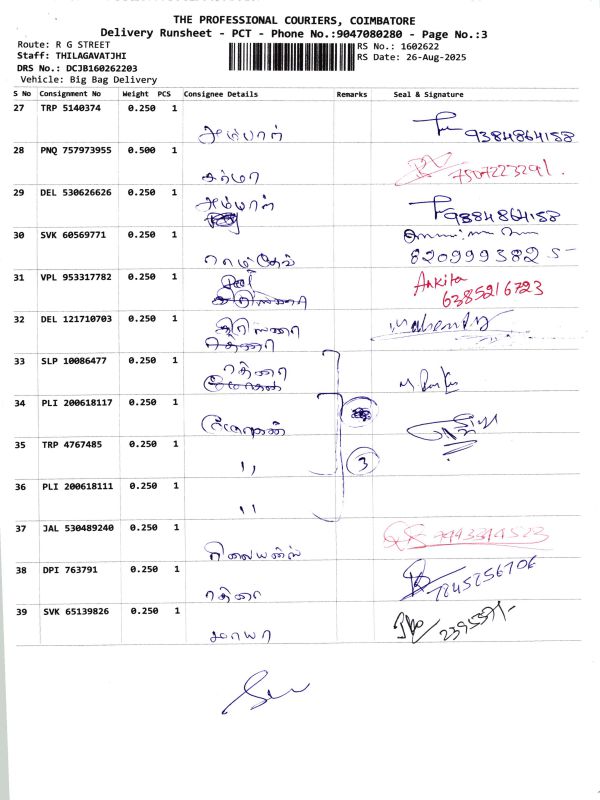 THE PROFESSIONAL COURIERS, COIMBATORE
Delivery Runsheet - PCT - Phone No.:9047080280 - Page No.:3
Route: R G STREET
Staff: THILAGAVATJHI
DRS No.: DCJB160262203
Vehicle: Big Bag Delivery
RS No.: 1602622
RS Date: 26-Aug-2025
S No Consignment No Weight PCS Consignee Details Remarks Seal & Signature
27 TRP 5140374 0.250 1
அம்பாள் 9384864158
28 PNQ 757973955 0.500 1
கர்மா 7507223291.
29 DEL 530626626 0.250 1
அம்பாள் 9384864158
30 SVK 60569771 0.250 1
820999382 5
31 VPL 953317782 0.250 1
Ankita
6385216723
32 DEL 121710703 0.250 1
33 SLP 10086477 0.250 1
34 PLI 200618117 0.250 1
35 TRP 4767485 0.250 1
,, 3
36 PLI 200618111 0.250 1
,,
37 JAL 530489240 0.250 1
38 DPI 763791 0.250 1
7245256706
39 SVK 65139826 0.250 1
மாயா